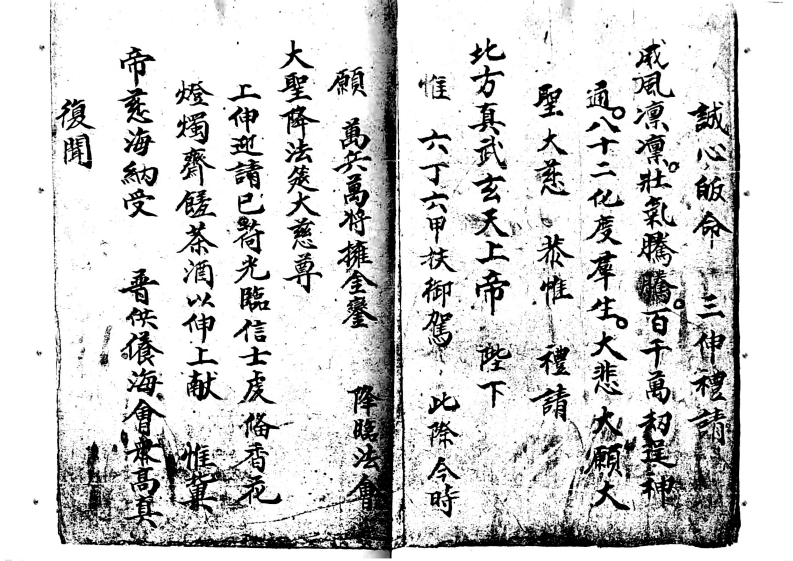 誠心皈命　三伸禮請
威風凛凛。壯氣騰騰。百千萬刼逞神
通。八十二化度羣生。大悲大願大
聖大慈　恭惟　禮請
北方真武玄天上帝　陛下
惟　六丁六甲扶御駕　此際今時
願　萬兵萬將擁金鑾　降臨法會
大聖降法筵大慈尊
上伸迎請已荷光臨信士虔俻香花
燈燭齋饈茶酒以伸上献　惟冀
帝慈海納受　普供養海會眾高真
復聞